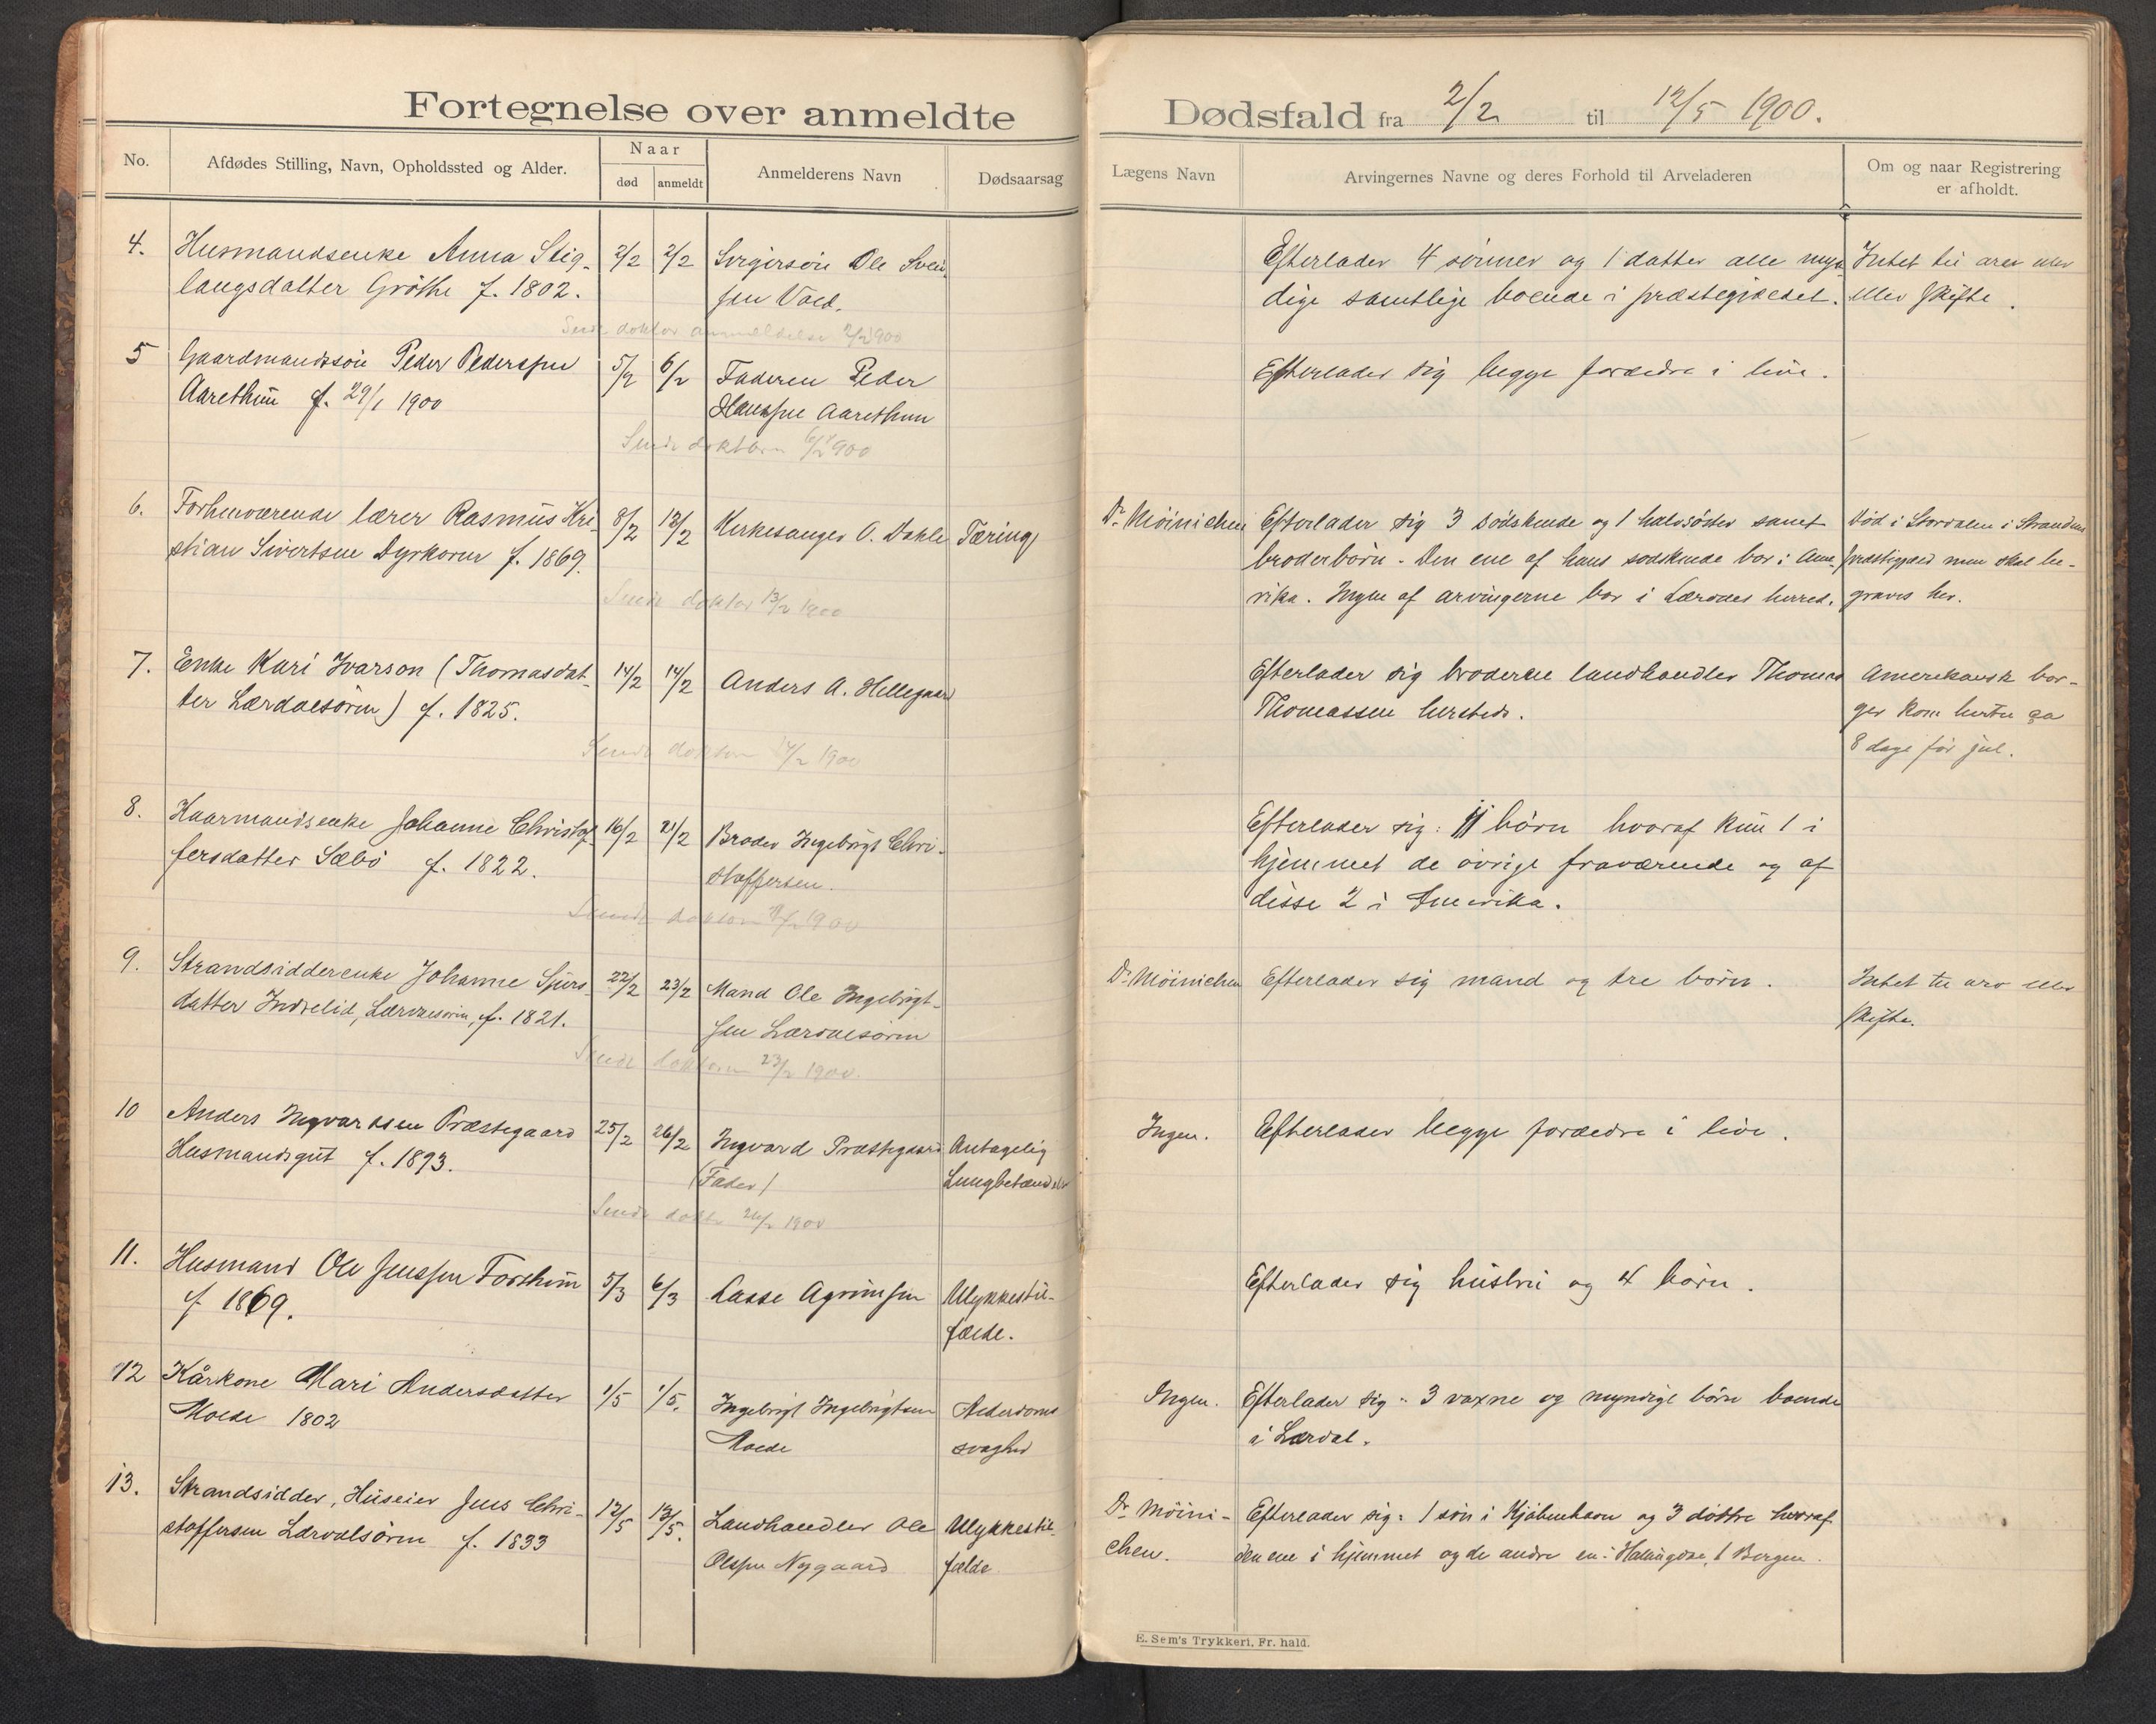 Fortegnelse over anmeldte
Dødsfald fra 2/2 til 12/5 1900.
No.
Afdødes Stilling, Navn, Opholdssted og Alder.
Naar
død
anmeldt
Anmelderens Navn
Dødsaarsag
Lægens Navn
Arvingernes Navne og deres Forhold til Arveladeren
Om og naar Registrering
er afholdt.
4. Husmandsenke Anna Stig- 2/2 2/2 Ole Svein-
langsdatter Gröthe f. 1802. sen Vold.
Efterlader 4 sönner og 1 datter alle myn- Intet til arv eller
dige samtlige boende i præstegjeldet. eller skifte.
Sendt doktor anmeldelse 2/2 1900
5 Gaardmandssön Peder Pederssen 5/2 6/2 Faderen Peder
Aarethun f. 29/1 1900 Hanssen Aarethun
Efterlader sig begge forældre i live.
Sendt doktoren 6/2 1900
6. Forhenværende lærer Rasmus Kri- 8/2 13/2 Kirkesanger O. Dahle Tæring
stian Sivertsen Dyrkorn f. 1869.
Dr. Möinichen Efterlader sig 3 södskende og 1 halvsöster samt Död i Stordalen i Strandens
broderbörn. Den ene af hans sodskende bor i Ame- præstegjeld men skal be-
rika. Ingen af arvingerne bor i Lærdals herred. graves her.
Sendt doktor 13/2 1900
7. Enke Kari Ivarson (Thomasdat- 14/2 14/2 Anders A. Hellegaard
ter Lærdalsören) f. 1825.
Efterlader sig broderen landhandler Thomas Amerikansk bor-
Thomassen hersteds. ger kom hertil ca
8 dage för jul.
Sendt doktoren 14/2 1900
8. Kaarmandsenke Johanne Christof- 16/2 21/2 Broder Ingebrigt Chri-
fersdatter Sæbö f. 1822. stoffersen.
Efterlader sig: börn hvoraf kun 1 i
hjemmet de övrige fraværende og af
disse 2 i Amerika.
Sendt doktoren 1900
9. Strandsidderenke Johanne Sjurs- 22/2 23/2 Mand Ole Ingebrigt-
datter Indrelid, Lærdalsören, f. 1821. sen Lærdalsören
Dr. Möinichen Efterlader sig mand og tre börn. Intet til arv eller
skifte.
Sendt doktoren 23/2 1900.
10 Anders Ingvardsen Præstegaard 25/2 26/2 Ingvard Præstegaard Antagelig
Husmandsgut f. 1893. (Fader) Lungbetændelse
Ingen. Efterlader begge forældre i live.
Sendt doktor 26/2 1900
11. Husmand Ole Jenssen Torshim 5/3 6/3 Lasse Agrimsen Ulykkestil-
f 1869. fælde.
Efterlader sig hustru og 4 börn.
12 Kårkone Mari Andersdatter 1/5 1/5. Ingebrigt Ingebrigtsen Alderdoms
Molde 1802 Molde svaghed
Ingen. Efterlader sig: 3 voxne og myndige börn boende
i Lærdal.
13. Strandsidder, Huseier Jens Chri- 12/5 13/5. Landhandler Ole Ulykkestil-
stoffersen Lærdalsören f. 1833 Olssen Nygaard fælde
Dr. Möini- Efterlader sig: 1 sön i Kjöbenhavn og 3 döttre hvoraf
chen. den ene i hjemmet og de andre en i Hallingdal, 1 Bergen.
E. Sem's Trykkeri, Fr. hald.